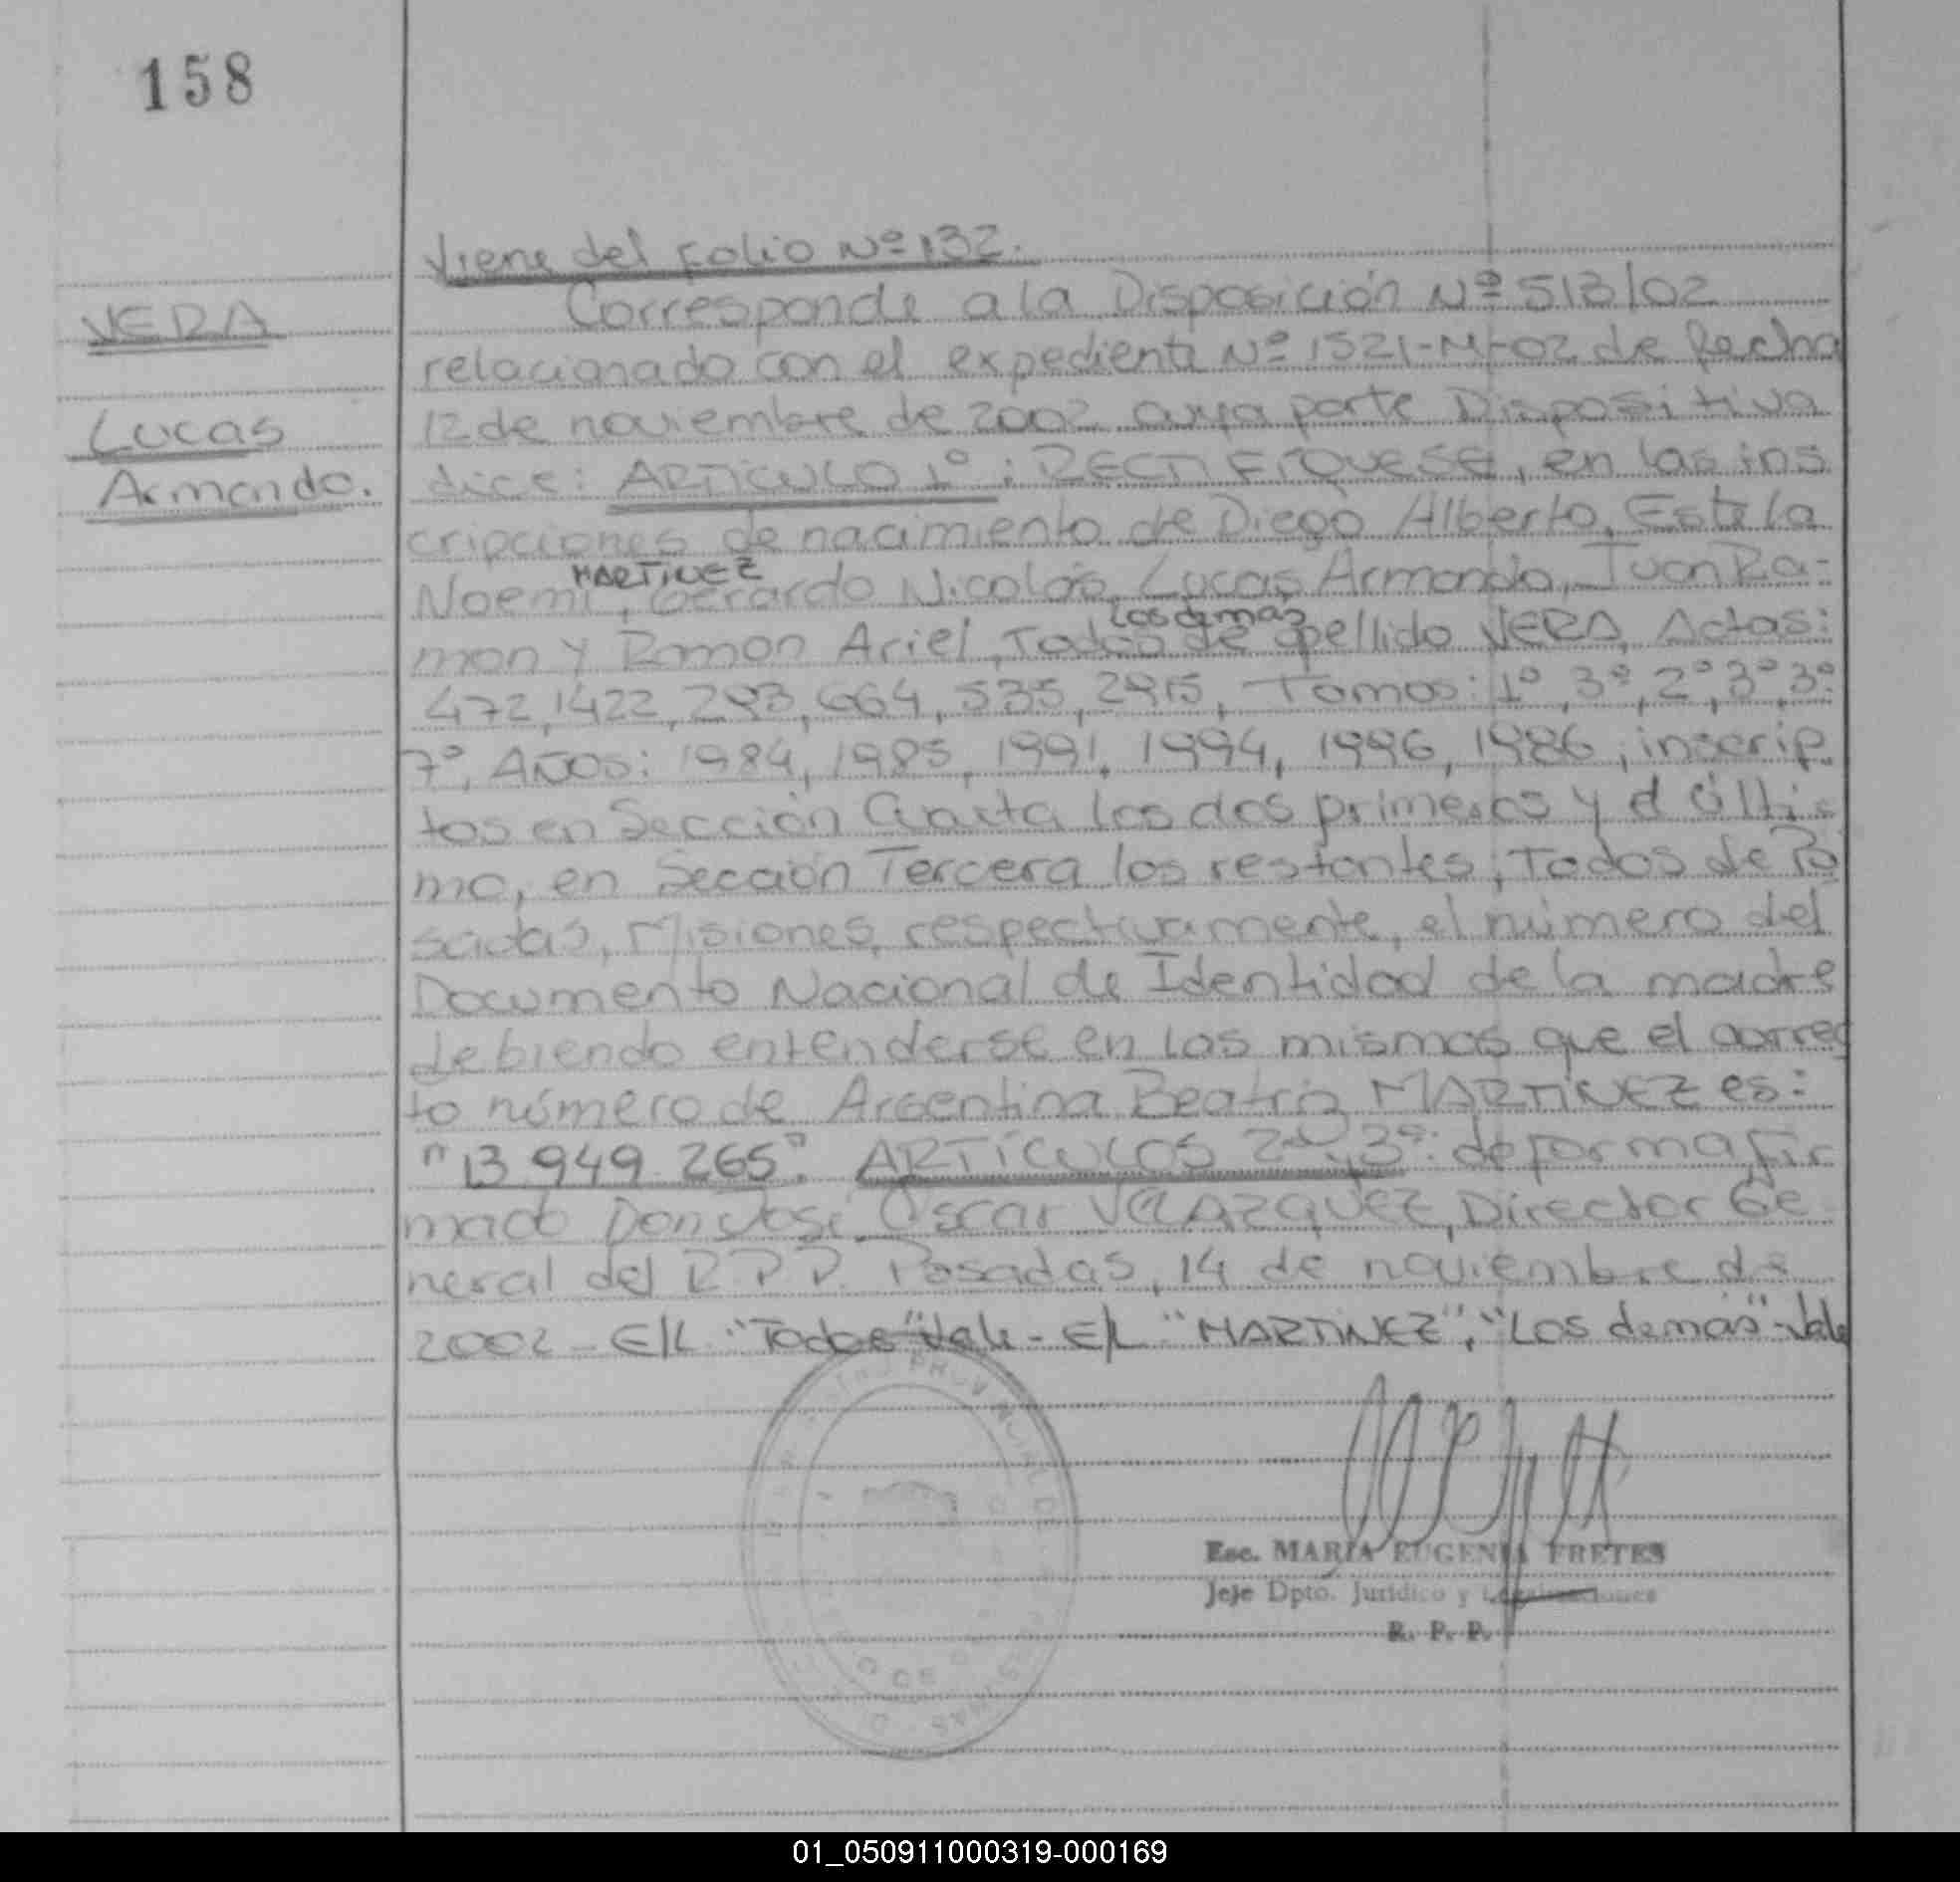 158
Viene del Folio Nº 132.
Corresponde a la Disposición Nº 513/02
VERA
relacionado con el expediente Nº 1521-M-02 de fecha
12 de noviembre de 2002 cuya parte Dispositiva
Lucas
dice: ARTICULO 1º: RECTIFIQUESE, en las ins
Armando.
cripciones de nacimiento de Diego Alberto, Estela
MARTINEZ
Noemi, Gerardo Nicolás, Lucas Armando, Juan Ra-
Los demas
mon y Ramon Ariel, Todos de apellido VERA, Actas:
472, 1422, 293, 664, 535, 2915, Tomos: 1º, 3º, 2º, 3º, 3º
7º, AÑOS: 1984, 1985, 1991, 1994, 1996, 1986, inscrip
tos en Sección Cuarta los dos primeros y el últi
mo, en Sección Tercera los restantes; Todos de Po
sadas, Misiones, respectivamente, el número del
Documento Nacional de Identidad de la madre
debiendo entenderse en los mismos que el correc
to número de Argentina Beatriz MARTINEZ es:
"13.949.265". ARTÍCULOS 2º y 3º: de forma Fir
mado Don José Oscar VELAZQUEZ, Director Ge
neral del R.P.P. Posadas, 14 de noviembre de
2002 - E/L "Todos" Vale - E/L "MARTINEZ", "Los demás" - Vale
Esc. MARIA EUGENIA FRETES
Jefe Dpto. Jurídico y Legalizaciones
R. P. P.
01_050911000319-000169